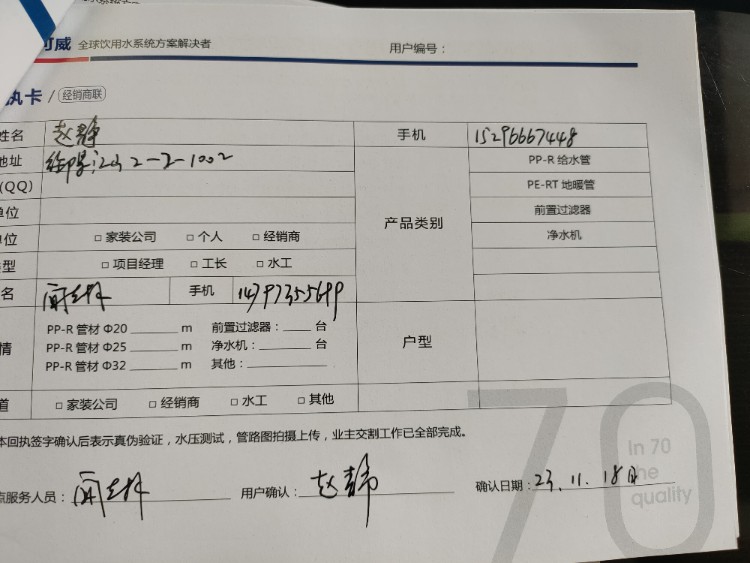 可威 全球饮用水系统方案解决者 用户编号：
执卡 / 经销商联
姓名 赵静 手机 15296667448
地址 2-2-1002 PP-R 给水管
(QQ) PE-RT 地暖管
单位 产品类别 前置过滤器
单位 □ 家装公司 □ 个人 □ 经销商 净水机
型 □ 项目经理 □ 工长 □ 水工
名 手机 14797355699
情 PP-R 管材 Φ20 m 前置过滤器： 台 户型
PP-R 管材 Φ25 m 净水机： 台
PP-R 管材 Φ32 m 其他：
道 □ 家装公司 □ 经销商 □ 水工 □ 其他
本回执签字确认后表示真伪验证，水压测试，管路图拍摄上传，业主交割工作已全部完成。
70
In 70
the
quality
点服务人员： 用户确认：赵静 确认日期：23.11.18日